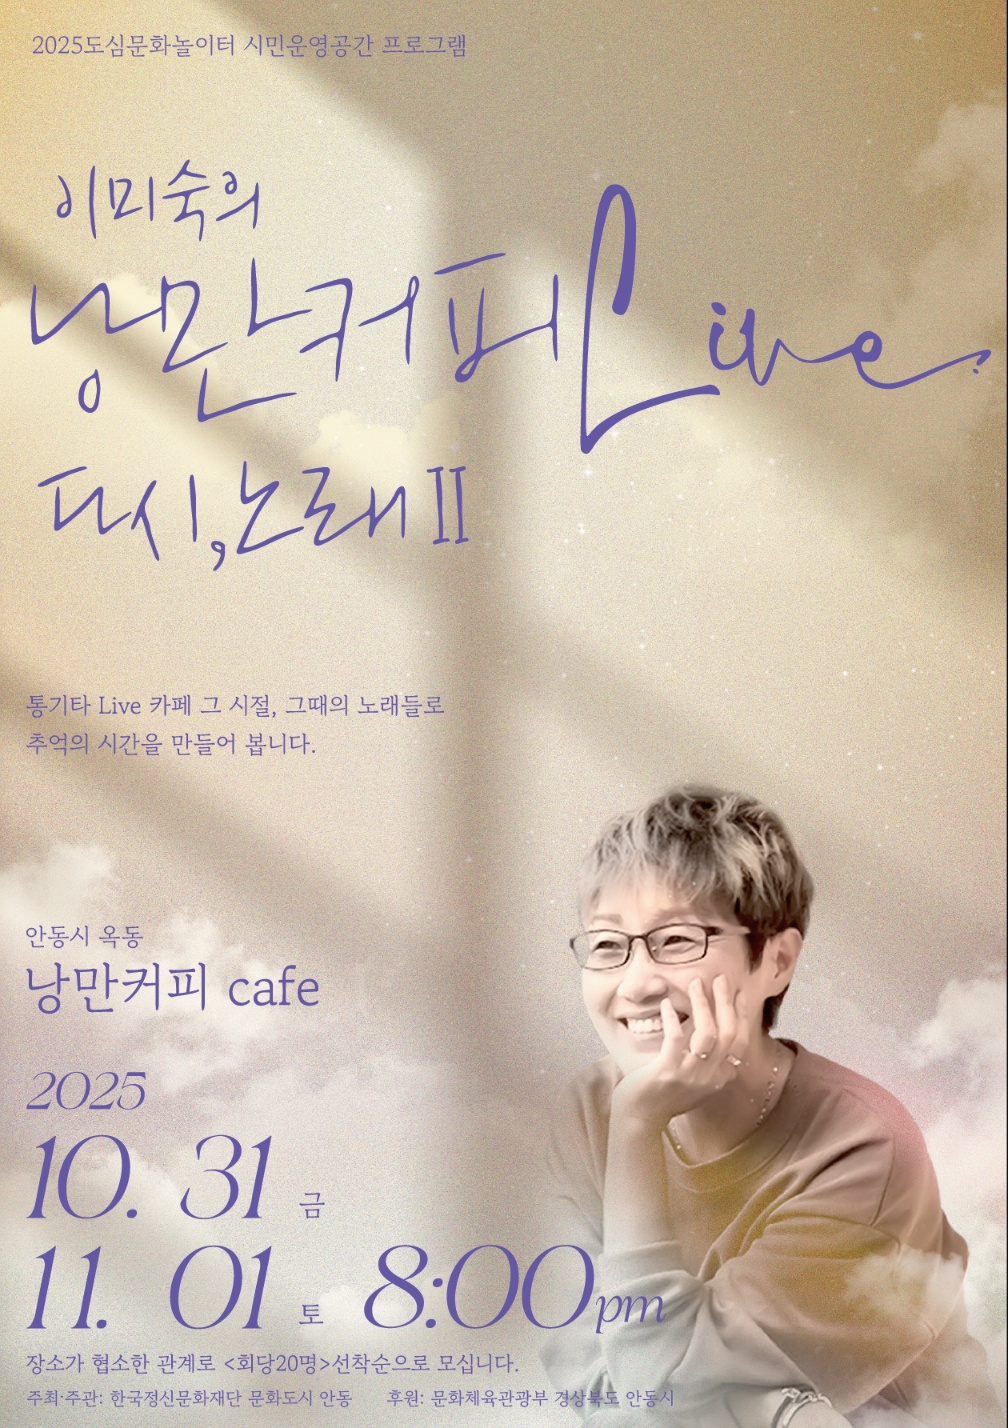 2025도심문화놀이터 시민운영공간 프로그램
이미숙의
낭만커피 Live
다시, 노래 II
통기타 Live 카페 그 시절, 그때의 노래들로
추억의 시간을 만들어 봅니다.
안동시 옥동
낭만커피 cafe
2025
10. 31 금
11. 01 토 8:00pm
장소가 협소한 관계로 <회당20명>선착순으로 모십니다.
주최·주관: 한국정신문화재단 문화도시 안동 후원: 문화체육관광부 경상북도 안동시